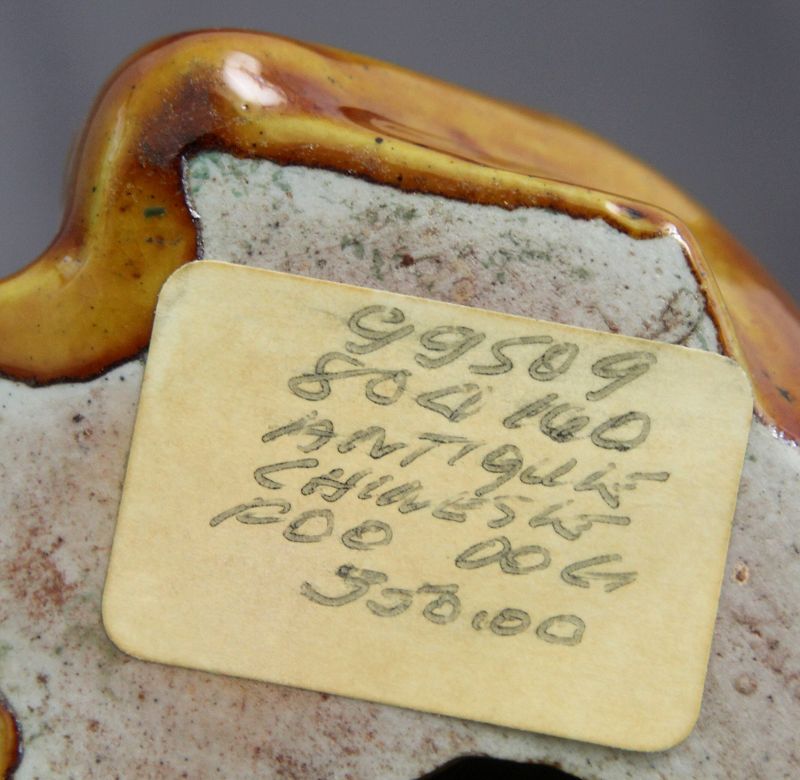 G9509
80G 160
ANTIQUE
CHINESE
FOO DOG
350.00